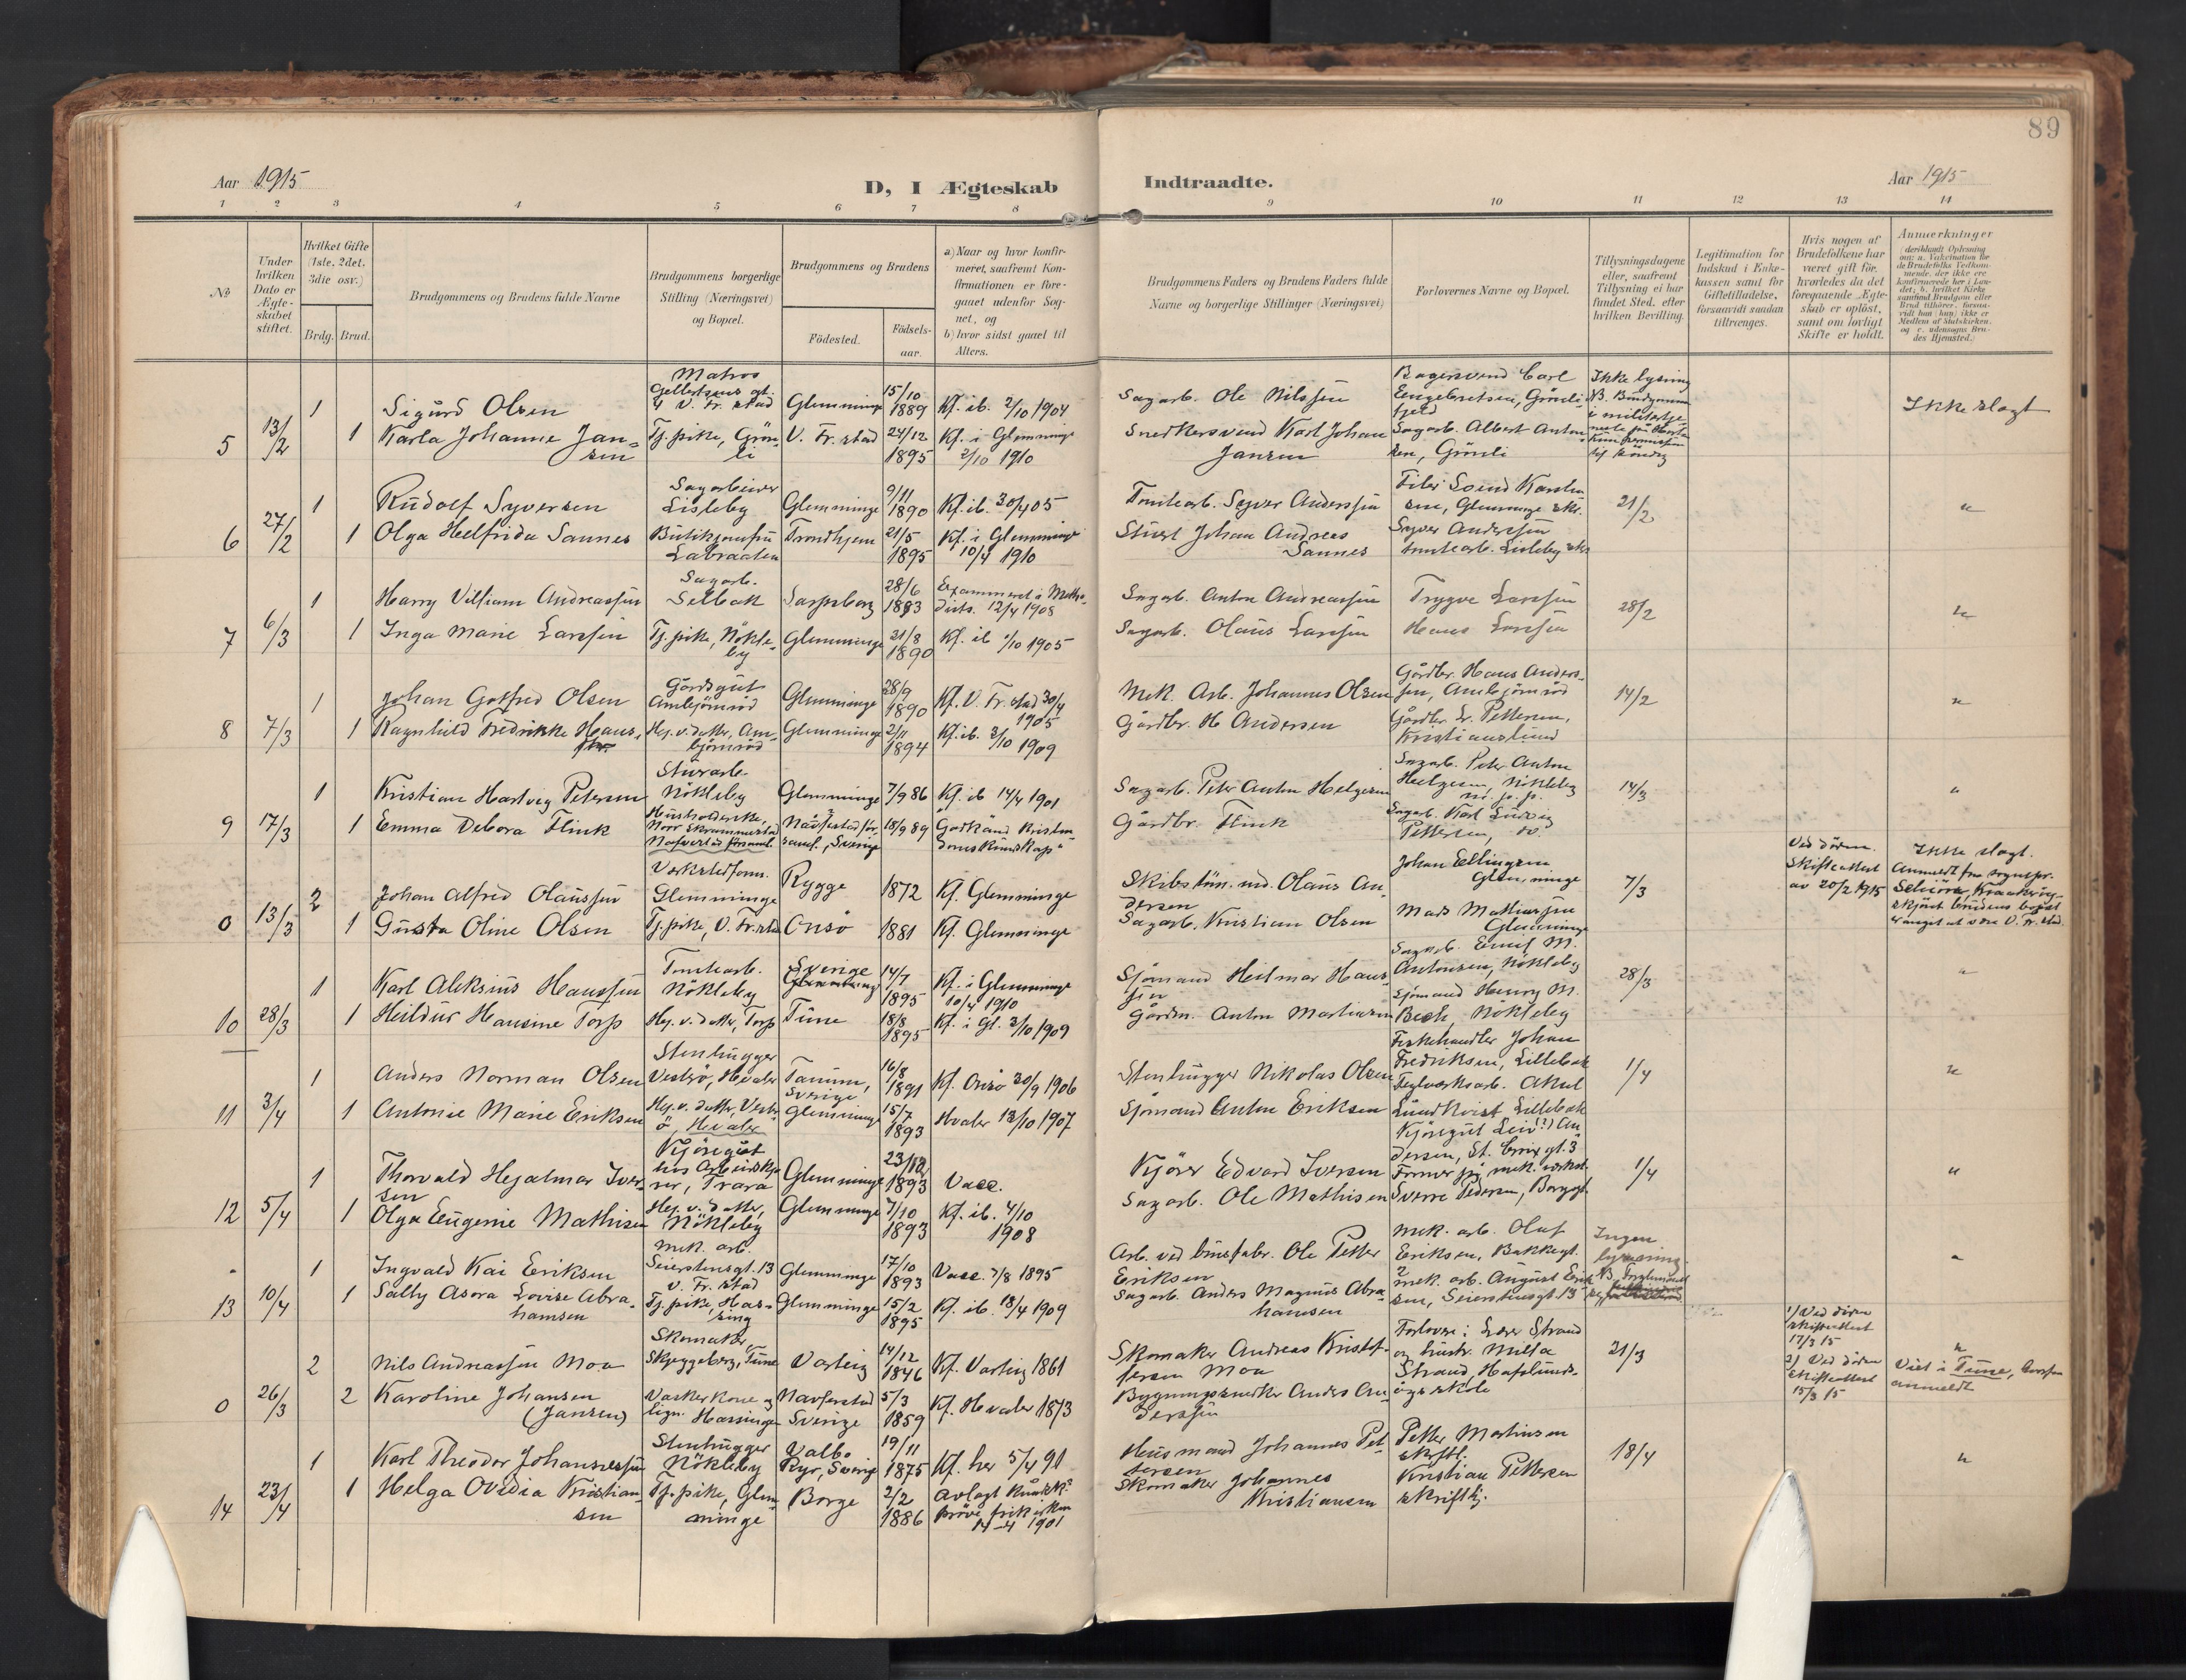 89
Aar 1915
D, I Ægteskab
Indtraadte.
Aar 1915
1 2 3 4 5 6 7 8 9 10 11 12 13 14
No
Under hvilken Dato er Ægteskabet stiftet.
Hvilket Gifte (1ste, 2det, 3die osv.)
Brdg. Brud.
Brudgommens og Brudens fulde Navne
Brudgommens borgerlige Stilling (Næringsvei) og Bopæl.
Brudgommens og Brudens
Födested.
Födselsaar.
a) Naar og hvor konfirmeret, saafremt Konfirmationen er foregaaet udenfor Sognet, og
b) hvor sidst gaaet til Alters.
Brudgommens Faders og Brudens Faders fulde Navne og borgerlige Stillinger (Næringsvei)
Forlovernes Navne og Bopæl.
Tillysningsdagene eller, saafremt Tillysning ei har fundet Sted, efter hvilken Bevilling.
Legitimation for Indskud i Enkekassen samt for Giftetilladelse, forsaavidt saadan tiltrænges.
Hvis nogen af Brudefolkene har været gift för, hvorledes da det foregaaende Ægteskab er oplöst, samt om lovligt Skifte er holdt.
Anmærkninger
5 13/2
1 Sigurd Olsen
Matros Gellertsens gt. 4 V. Fr.stad
Glemminge 15/10 1889 Kf. ib. 2/10 1904
Sagarb. Ole Nilssen
Bagersvend Carl Engebretsen, Grönlifjeld
Ikke lysning
Ikke slegt
1 Karla Johanne Jansen
Tj.pike, Grönli
V. Fr.stad 24/12 1895 Kf. i Glemminge 2/10 1910
Snedkersvend Karl Johan Jansen
Sagarb. Albert Antonsen, Grönli
6 27/2
1 Rudolf Syversen
Sagarbeider Lisleby
Glemminge 9/11 1890 Kf. ib. 30/4 05
Tomtearb. Syver Anderssen
21/2
"
1 Olga Helfrida Sannes
Butikjomfru Labraaten
Trondhjem 21/5 1895 Kf. i Glemminge 10/4 1910
Stuert Johan Andreas Sannes
Syver Anderssen tomtearb. Lisleby
7 6/3
1 Harry Villiam Andreassen
Sagarb. Selbak
Sarpsborg 28/6 1883 Examineret i Methodists. 12/4 1908
Sagarb. Anton Andreassen
Trygve Larssen
28/2
"
1 Inga Marie Larssen
Tj.pike, Nökleby
Glemminge 21/8 1890 Kf. ib 1/10 1905
Sagarb. Olaus Larssen
Hans Larssen
8 7/3
1 Johan Gotfred Olsen
Gårdsgut Ambjörnröd
Glemminge 28/9 1890 Kf. V. Fr.stad 30/4 1905
Mek. Arb. Johannes Olsen
Gårdbr. Hans Anderssen, Ambjörnröd
14/2
"
1 Ragnhild Fredrikke Hans.
Hj.v. datter, Ambjörnröd
Glemminge 2/11 1894 Kf. ib. 3/10 1909
Gårdbr. H Andersen
Gårdbr. Pettersen, Kristianslund
9 17/3
1 Kristian Hartvig Petersen
Stuarb. Nökleby
Glemminge 7/9 86 Kf. ib 14/4 1901
Sagarb. Peter Anton Helgesen
Sagarb. Peter Anton Helgesen, Nökleby
14/3
"
1 Emma Debora Flink
Husholderske,
18/9 89 Godkänd Kristendomskunskap"
Gårdbr. Flink
Sagarb. Karl Ludvig Pettersen, do.
0 13/3
2 Johan Alfred Olaussen
Verkstedform. Glemminge
Rygge 1872 Kf. Glemminge
Skibstöm.md. Olaus Andersen
Johan Ellingsen Glemminge
7/3
Ved döden. Skifteattest av 20/2 1915
Ikke slegt.
1 Gusta Oline Olsen
Tj.pike, V. Fr.stad
Onsö 1881 Kf. Glemminge
Sagarb. Kristian Olsen
Mads Mathiassen Glemminge
10 28/3
1 Karl Aleksius Hanssen
Tomtearb. Nökleby
Sverige 14/7 1895 Kf. i Glemminge 10/4 1910
Sjömand Heilmar Hanssen
Sagarb. Emil M. Antonsen, Nökleby
28/3
"
1 Heildur Hansine Torp
Hj.v. datter, Torp
Tune 18/8 1895 Kf. i Gl. 3/10 1909
Gårdm. Anton Martinsen
Sjömand Henry M. Bech, Nökleby
11 3/4
1 Anders Norman Olsen
Stenhugger Vesterö, Hvaler
Tanum, Sverige 16/8 1891 Kf. Onsö 30/9 1906
Stenhugger Nikolas Olsen
Fiskehandler Johan Fredriksen, Lillebak
1/4
"
1 Antonie Marie Eriksen
Hj.v. datter, Vesterö, Hvaler
Glemminge 15/7 1893 Hvaler 13/10 1907
Sjömand Anton Eriksen
Teglverksarb. Aksel Lundkvist Lillebak
12 5/4
1 Thorvald Hejalmar Iversen
Kjöregut
Glemminge 23/12 1893 Vacc.
Kjörer Edvard Iversen
Kjöregut Leiv Andersen, St. Croix gt. 3
1/4
"
1 Olga Eugenie Mathisen
Hj.v. datter, Nökleby
Glemminge 7/10 1893 Kf. ib. 4/10 1908
Sagarb. Ole Mathisen
Sverre Pedersen, Borggt.
13 10/4
1 Ingvald Kai Eriksen
Mek. arb. Seierstensgt. 13 V. Fr.stad
Glemminge 17/10 1893 Vacc. 7/8 1895
Ole Petter Eriksen
Mek. arb. Olaf Eriksen, Bakkegt. 2
Ingen lysning
"
1 Sally Asora Lovise Abrahamsen
Tj.pike, Hassing
Glemminge 15/2 1895 Kf. ib. 18/4 1909
Sagarb. Anders Magnus Abrahamsen
mek. arb. August Eriksen, Seierstensgt. 13
0 26/3
2 Nils Andreassen Moa
Skomaker, Skjeggeberg, Tune
Varteig 14/12 1846 Kf. Varteig 1861
Skomaker Andreas Kristoffersen Moa
Forlovere: Lærer Strand og hustr. Milla Strand, Hafslunds skole
21/3
1) Ved döden skifteattest 17/3 15
2) Ved döden skifteattest 15/3 15
"
Viet i Tune,
anmeldt
2 Karoline Johansen (Jansen)
Vaskerkone og lign. Hassingen
Naverstad Sverige 5/3 1859 Kf. Hvaler 1873
Bygningssnedker Anders Anderssen
14 23/4
1 Karl Theodor Johannessen
Stenhugger Nökleby
Valbo Ryr, Sverige 19/11 1875 Kf. her 5/4 91
Husmand Johannes Pettersen
Petter Martinsen skriftl.
18/4
"
1 Helga Ovidia Kristiansen
Tj.pike, Glemminge
Borge 2/2 1886
14-4 1901
Skomaker Johannes Kristiansen
Kristian Pettersen skriftlig.